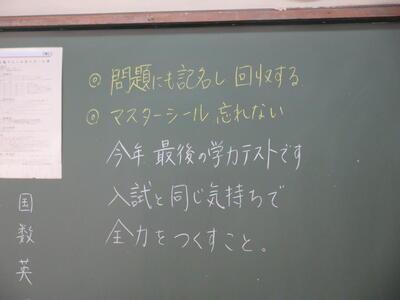 ◎ 問題にも記名し 回収する
◎ マスターシール 忘れない
今年 最後の学力テストです
入試と同じ気持ちで
全力をつくすこと。
国
数
英